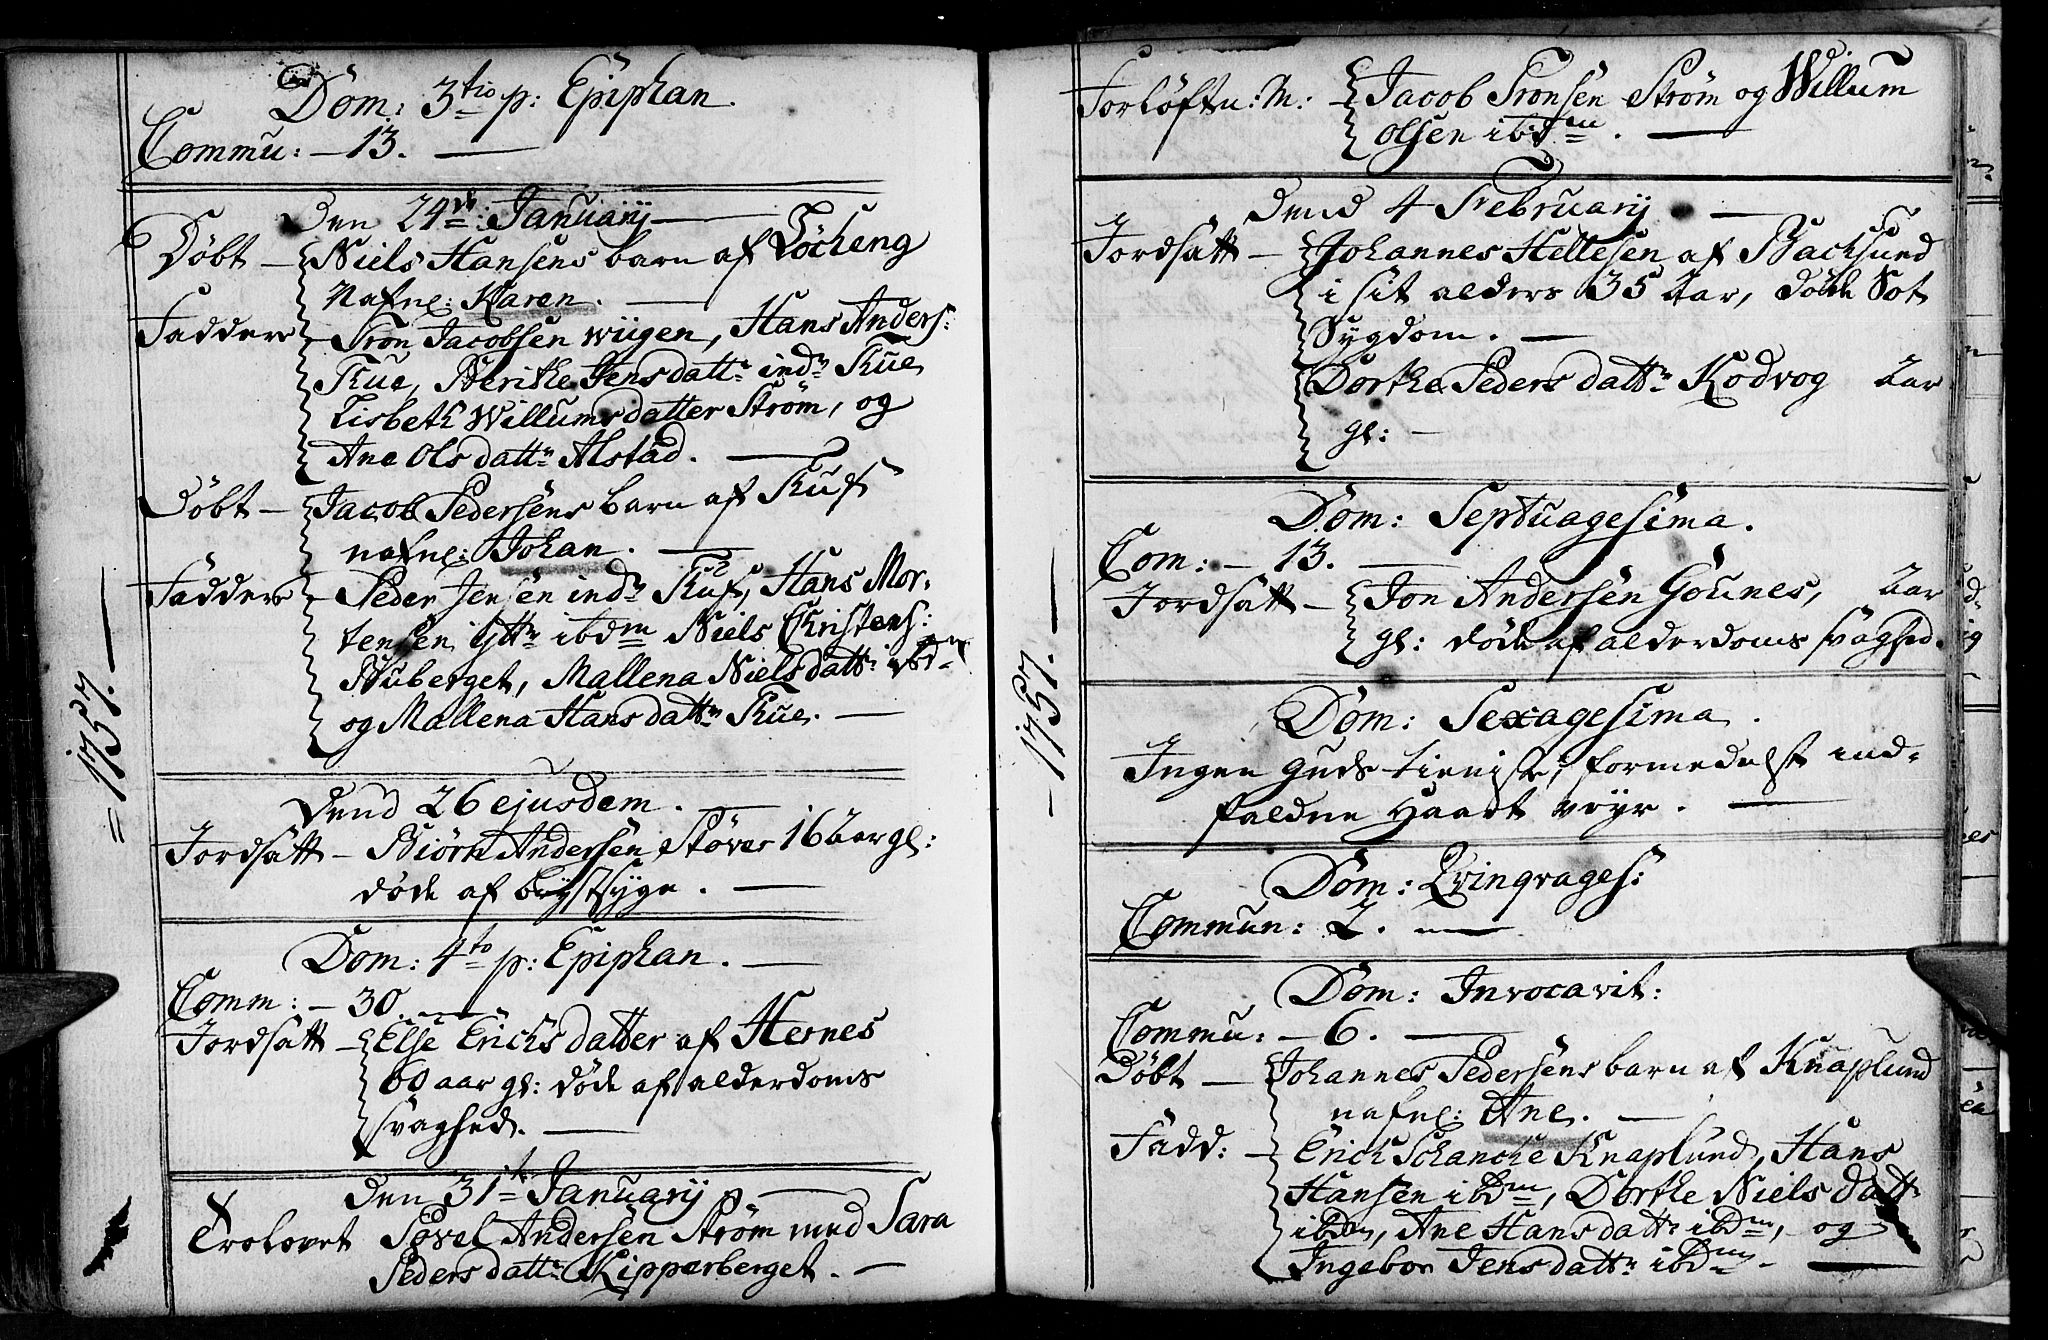 Dom: 3tio p: Epiphan.
Commu: - 13.
Den 24de: Januarij
Døbt - Niels Hansens barn af Løcheng
Nafnl: Karen.
Faddere - Tron Jacobsen Wiigen, Hans Anders:
Rue, Berithe Jensdattr indr Rue
Lisbeth Willumsdatter Strøm, og
Ane Olsdattr Alstad.
Døbt - Jacob Pedersens barn af
nafnl: Johan.
Faddere - Peder Jensen indr Hans Mor-
tensen ibdm Niels Christens:
Mallena Nielsdattr: ibdm
og Mallena Hansdattr Rue.
= 1757. -
Dend 26 ejusdem.
Jordsatt - Biørn Andersen Støver 16 aar gl:
døde af brystsyge.
Dom: 4to p: Epiphan.
Comm: - 30.
Jordsatt - Else Erichsdatter af Hernes
60 aar gl: døde af alderdoms
svaghed.
Den 31te Januarij
Trolovet Povel Andersen Strøm med Sara
Pedersdattr Kipperberget.
Forløftn: M: - Jacob Tronsen Strøm og Willum
Olsen ibdm.
Dend 4 Februarij
Jordsatt - Johannes Hellesen af Backsund
i sit alders 35 Aar, døde Sot
Sygdom.
Dorthe Pedersdattr Kodvog 2 aar
gl: -
Dom: Septuagesima.
Com: - 13.
Jordsatt - Jon Andersen Gounes, aar
gl: døde af alderdoms svaghed.
- 1757. -
Dom: Sexagesima.
Ingen Guds tieniste, formedelst ind-
faldne haardt veyr.
Dom: Qvinqvages:
Commun: 2.
Dom: Invocavit:
Commu: - 6.
Døbt - Johannes Pedersens barn af Knaplund
nafnl: Ane.
Fadd: - Erich Schancke Knaplund, Hans
Hansen ibdm, Dorthe Nielsdattr
ibdm, Ane Hansdattr ibdm, og
Ingebor Jensdattr ibdm -